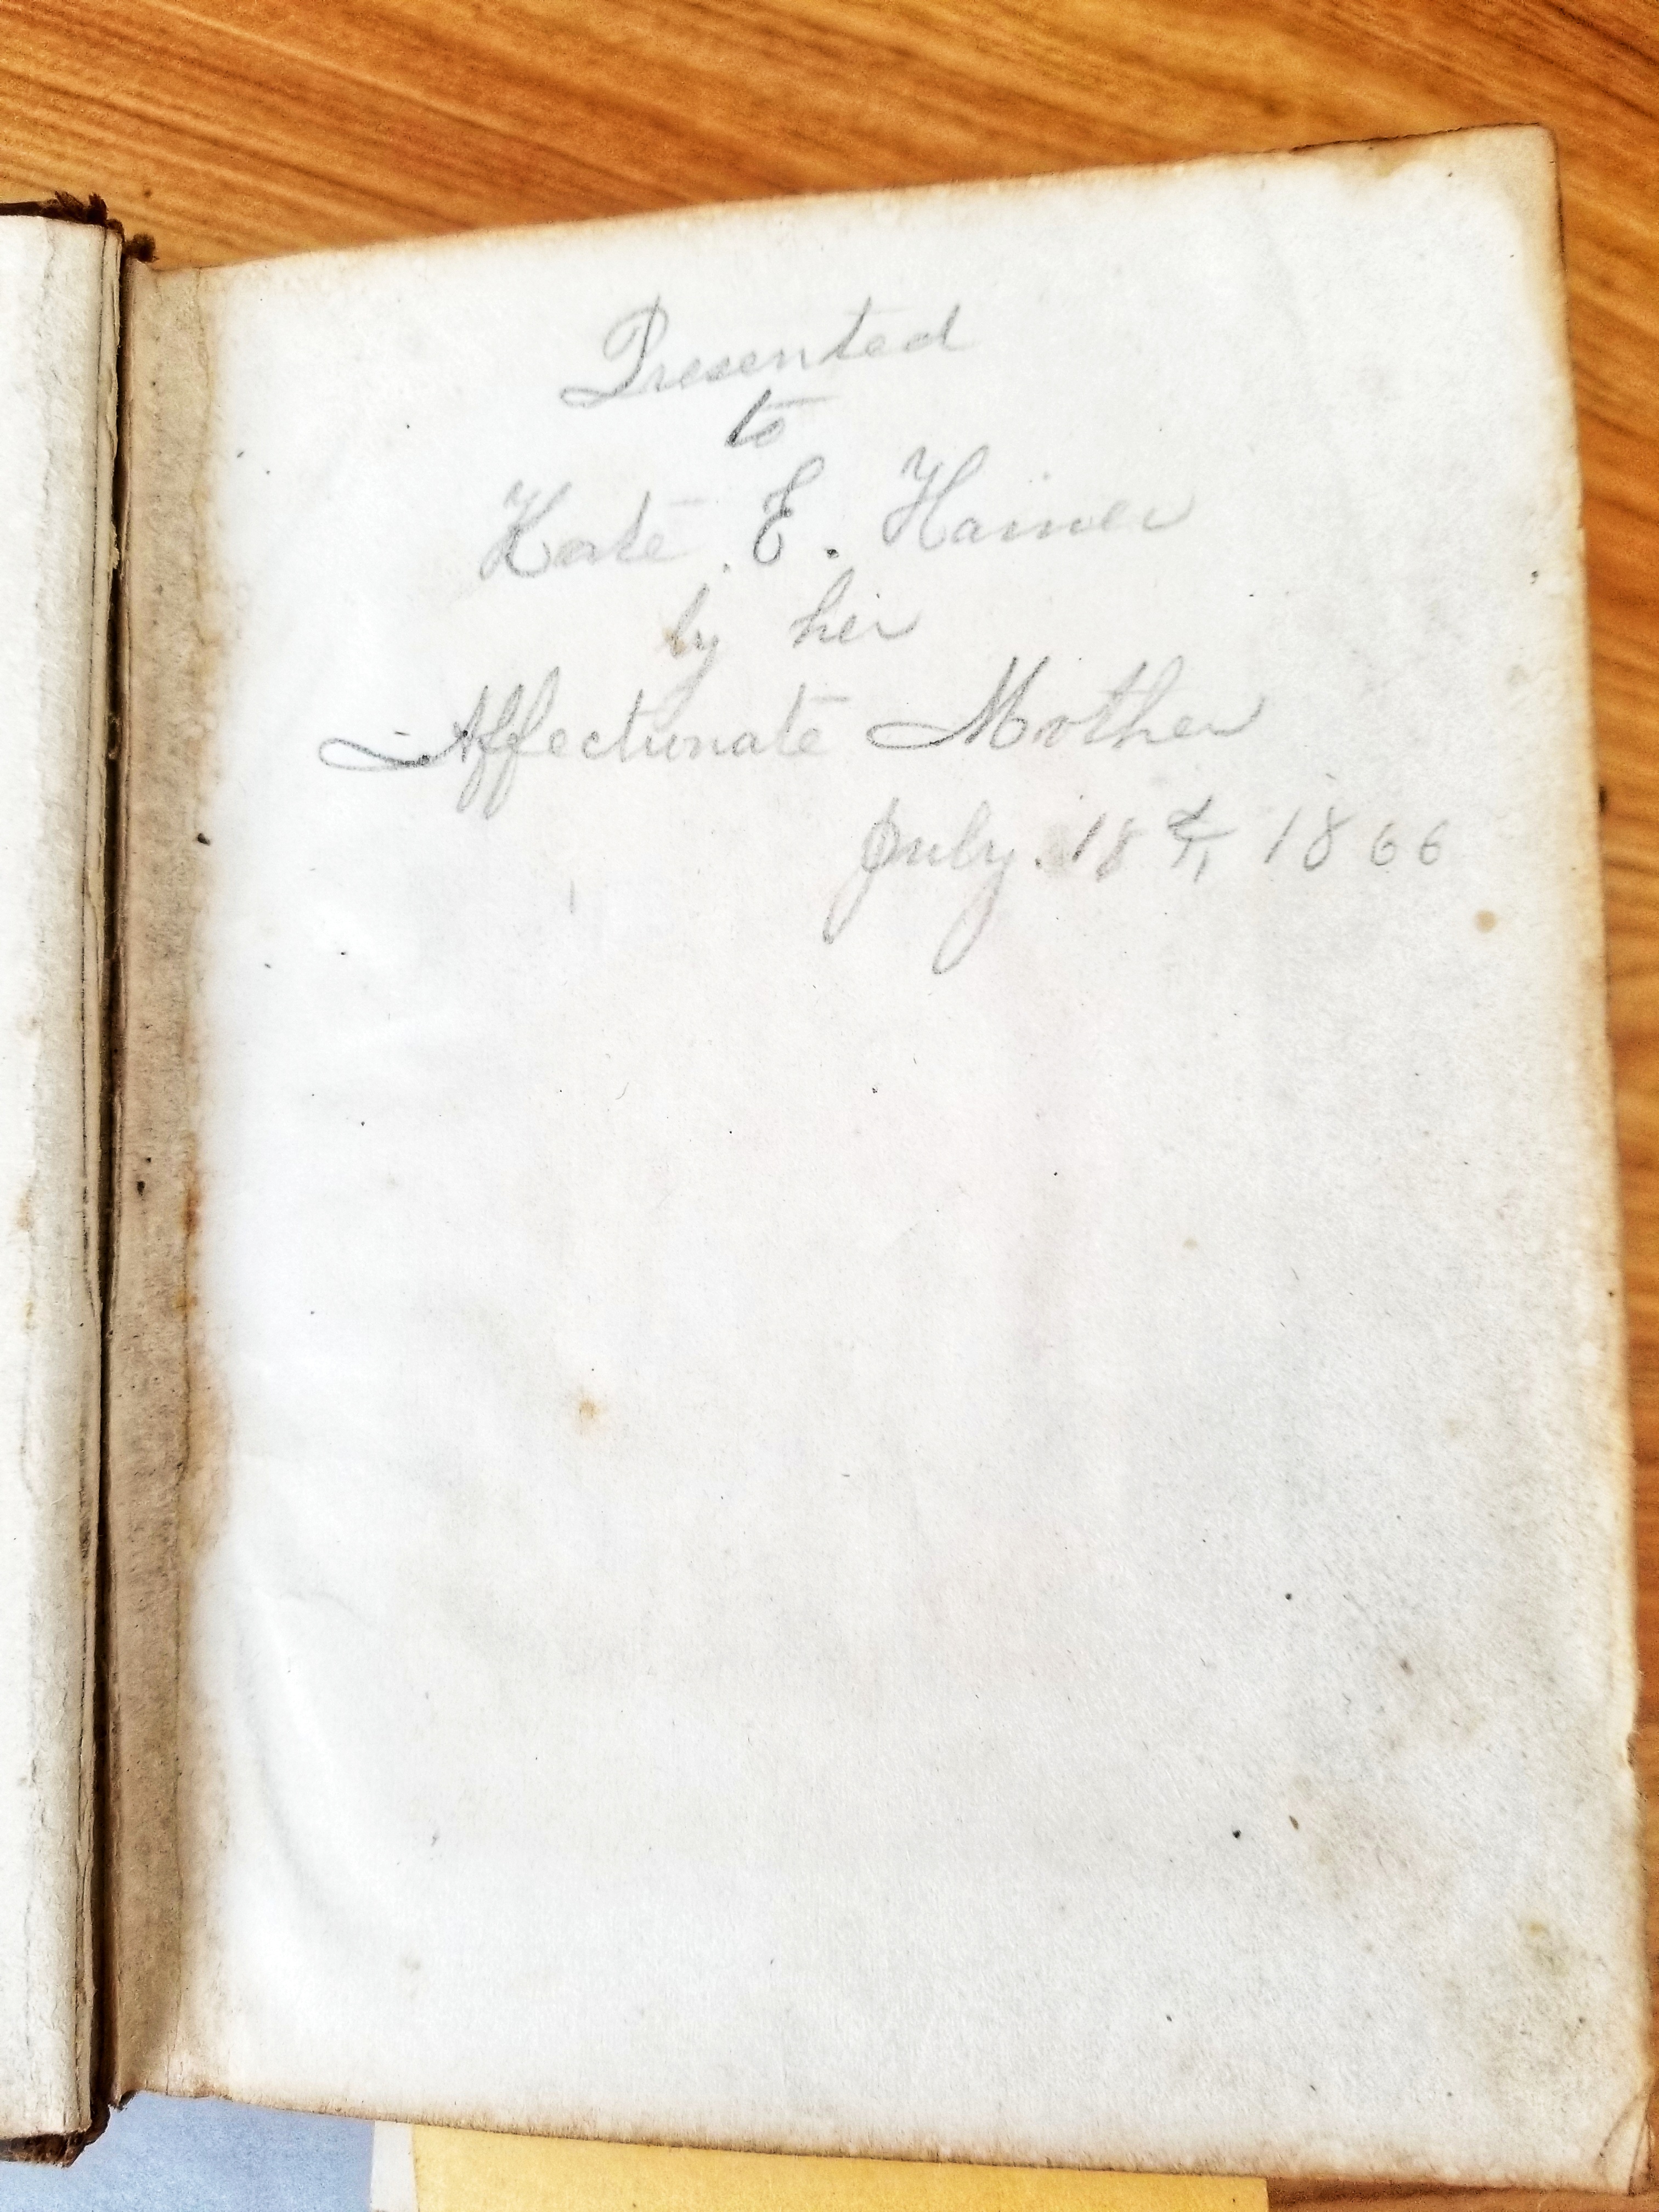 Presented
to
Kate E. Hainer
by her
Affectionate Mother
July 18th 1866